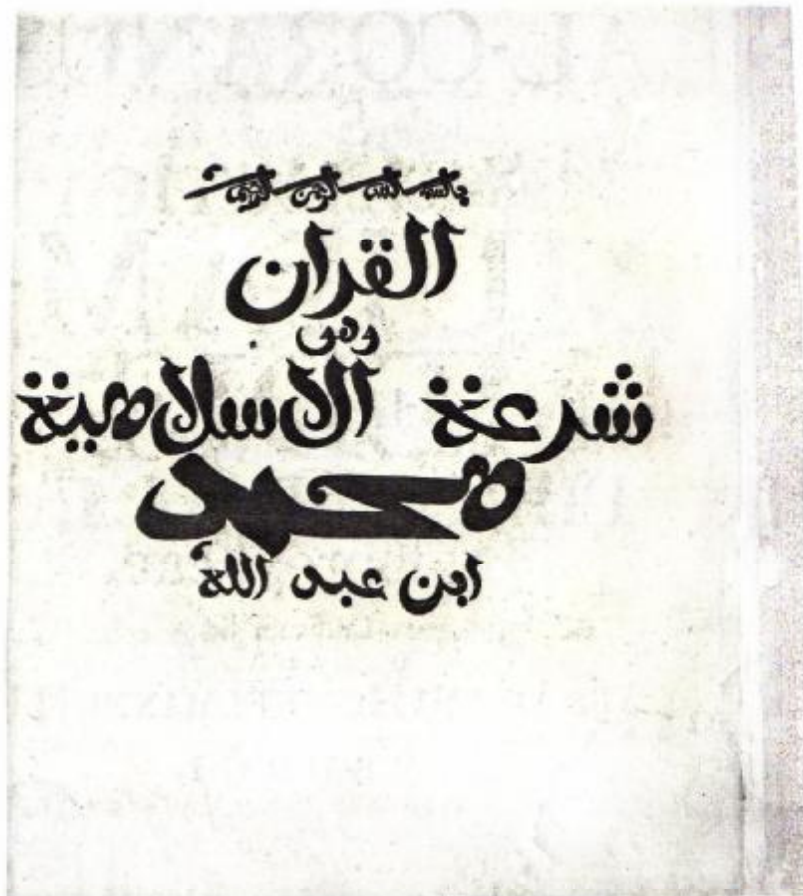 بالسم اللہ الرحمن الرحيم
القران
وهى
شرعة الاسلامية
محمد
ابن عبد اللة